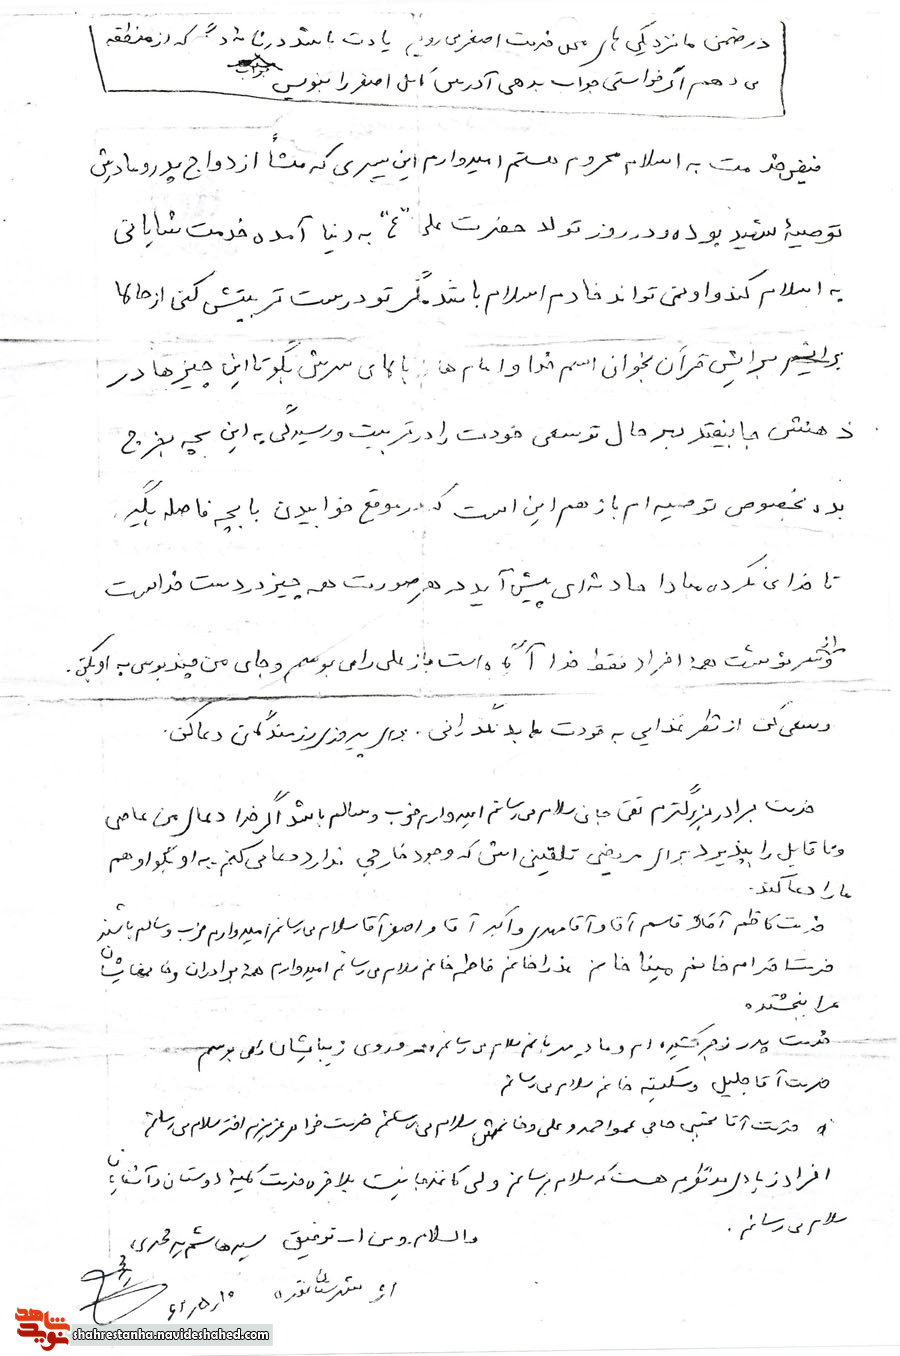 در ضمن ما نزدیکی های محل خدمت اصغر می رویم یادت باشد در نامه ات که از منطقه
می دهم اگر خواستی جواب بدهی آدرس کامل اصغر را بنویس
خدمت به اسلام محروم هستم امیدوارم این پسری که منشأ ازدواج پدر و مادرش
توصیهٔ شهید بوده و در روز تولد حضرت علی "ع" به دنیا آمده خدمت شایانی
به اسلام کند و او نمی تواند خادم اسلام باشد مگر تو درست تربیتش کنی از حالا
برایش قرآن بخوان اسم خدا و امام ها بالای سرش بگو تا این چیزها در
ذهنش جا بیفتد بهر حال تو سعی خودت را در تربیت و رسیدگی به این بچه بخرج
بده بخصوص توصیه ام باز هم این است که در موقع خوابیدن با بچه فاصله بگیر
تا خدای نکرده مبادا حادثه ای پیش آید در هر صورت همه چیز در دست خداست
و از سرنوشت همهٔ افراد فقط خدا آگاه است باز علی را می بوسم و جای من چند بوس به او بکن.
و سعی کن از نظر غذایی به خودت بد نگذرانی. برای پیروزی رزمندگان دعا کن.
خدمت برادر بزرگترم تقی جانی سلام می رسانم امیدوارم خوب و سالم باشد اگر خدا دعای من عاصی
و ناقابل را بپذیرد برای مریضی تلقینی اش که وجود خارجی ندارد دعا می کنم. به او بگو او هم
ما را دعا کند.
خدمت کاظم آقا و قاسم آقا و آقا مهدی و اکبر آقا و اصغر آقا سلام می رسانم امیدوارم خوب و سالم باشند
خدمت خانم مینا خانم عذرا خانم فاطمه خانم سلام می رسانم امیدوارم همهٔ برادران و خانمهایشان
مرا ببخشند
خدمت پدر زجر کشیده ام و مادر مهربانم سلام می رسانم و روی زیبایشان را می بوسم
خدمت آقا جلیل و سکینه خانم سلام می رسانم
خدمت آقا مجتبی حاجی عمو احمد و علی و خانمش سلام می رسانم خدمت خواهر عزیزم سلام می رسانم
افراد زیادی مد نظرم هست که سلام برسانم ولی کاغذ جا نیست بلاخره خدمت کلیهٔ دوستان و آشنایان
سلام می رسانم.
والسلام و من الله توفیق سید هاشم
۶۱/۵/۱۰
شاهد
نوید
shahrestanha.navideshahed.com